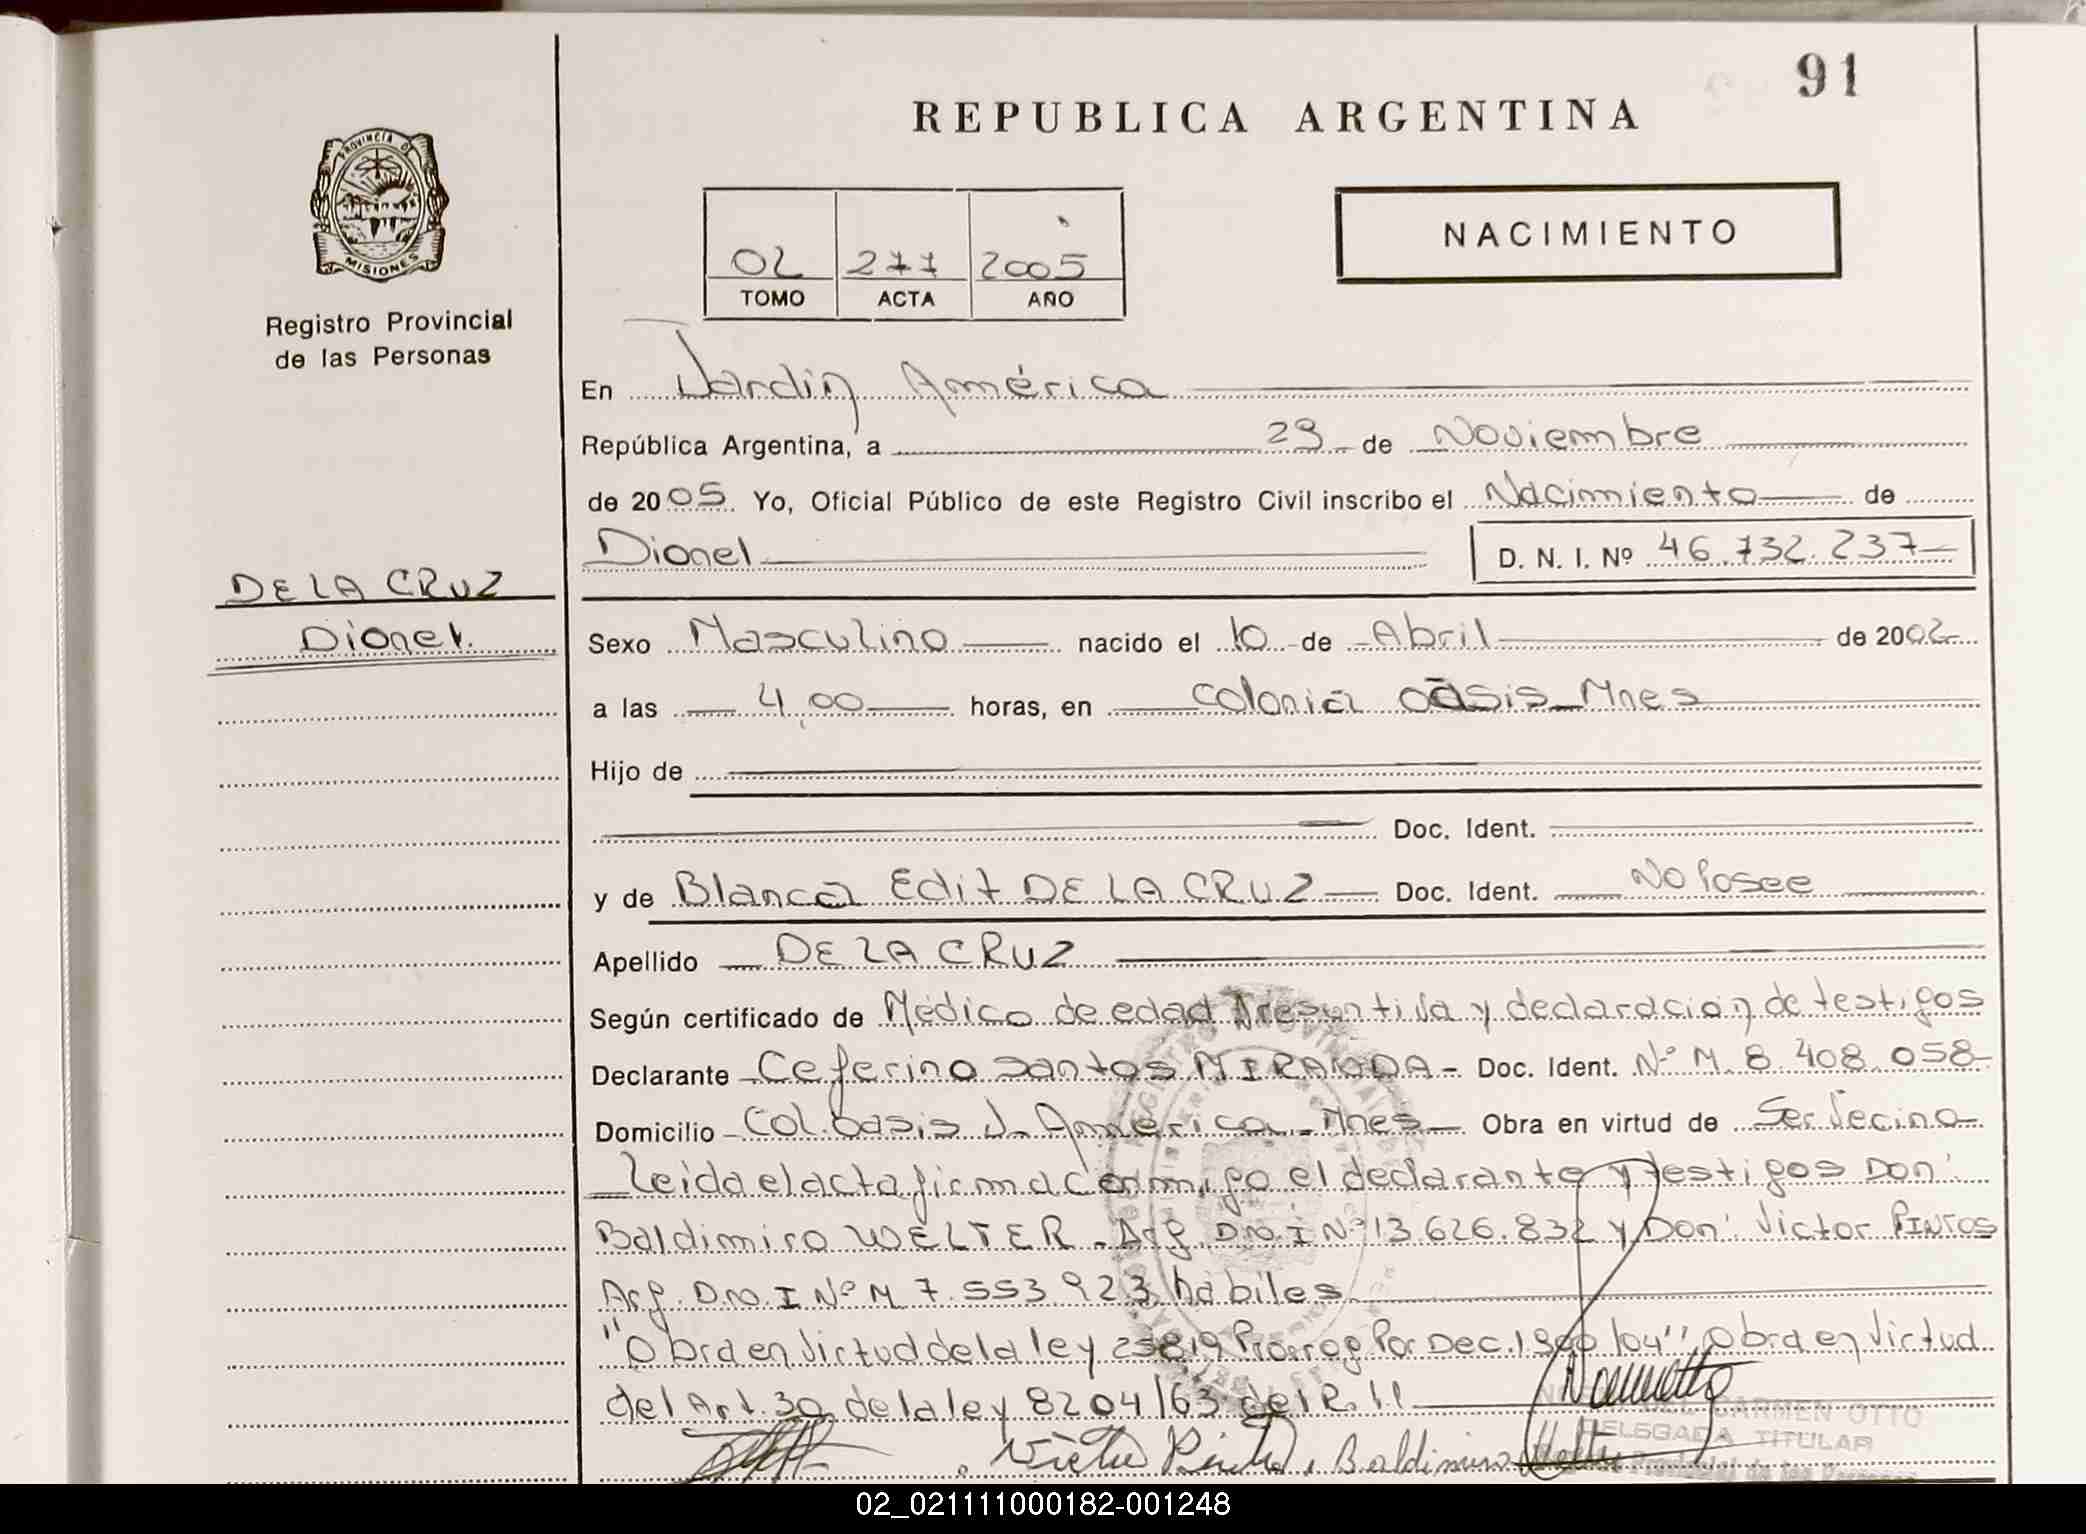 91
REPUBLICA ARGENTINA
PROVINCIA DE MISIONES
Registro Provincial
de las Personas
NACIMIENTO
02 277 2005
TOMO ACTA AÑO
En Jardín América
República Argentina, a 29 de Noviembre
de 2005. Yo, Oficial Público de este Registro Civil inscribo el Nacimiento de
Dionel D. N. I. Nº 46.732.237
DE LA CRUZ
Dionel.
Sexo Masculino nacido el 10 de Abril de 2002
a las 4,00 horas, en colonia oasis Mnes
Hijo de
Doc. Ident.
y de Blanca Edit DE LA CRUZ Doc. Ident. No Posee
Apellido DE LA CRUZ
Según certificado de Médico de edad Presuntiva y declaracion de testigos
Declarante Ceferino Santos MIRANDA - Doc. Ident. Nº M. 8.408.058
Domicilio Col. oasis J. América - Mnes Obra en virtud de Ser Vecino
Leida el acta firma conmigo el declarante y testigos Don:
Baldimiro WELTER - Arg. D.N.I Nº 13.626.832 y Don: Victor PINTOS
Arg. D.N.I Nº M 7.553.923 habiles
"Obra en virtud de la ley 25819 Prorrog Por Dec. 1900/04", Obra en virtud
del Art. 30 de la ley 8204/63 del R.
Baldimiro
CARMEN OTTO
DELEGADA TITULAR
02_021111000182-001248